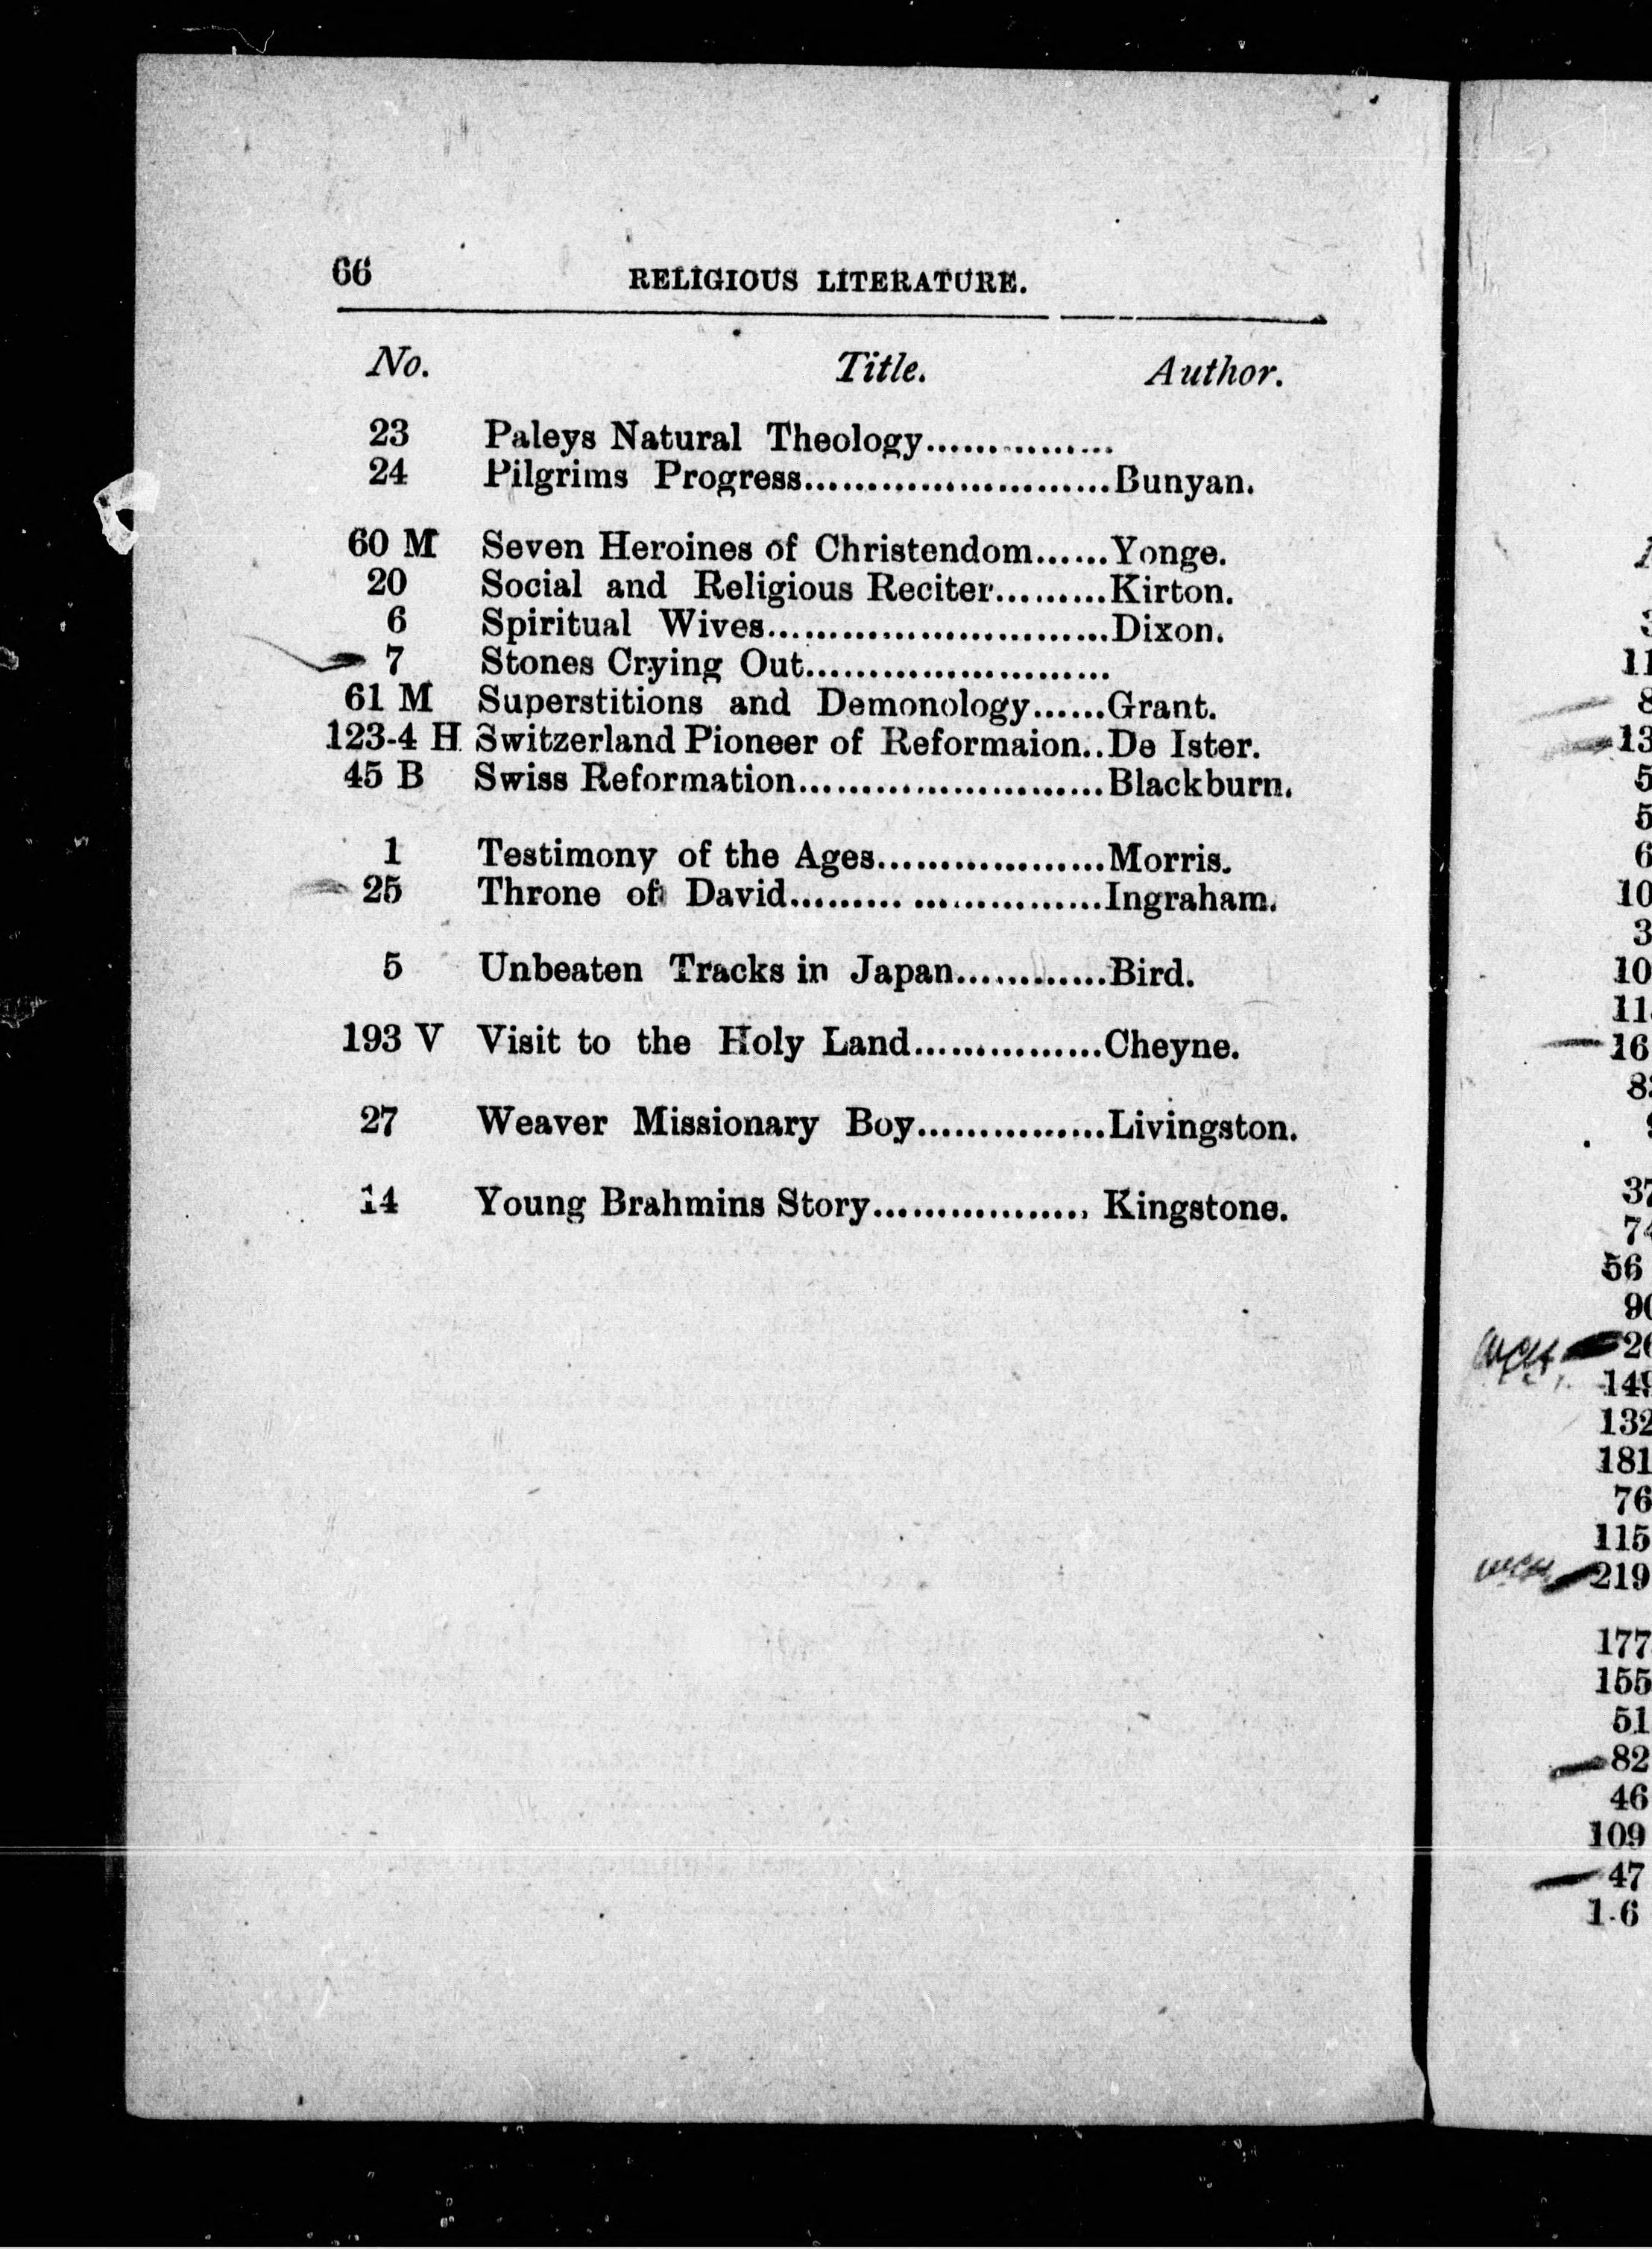 66 RELIGIOUS LITERATURE.
No. Title. Author.
23 Paleys Natural Theology...............
24 Pilgrims Progress.........................Bunyan.
60 M Seven Heroines of Christendom......Yonge.
20 Social and Religious Reciter.........Kirton.
6 Spiritual Wives............................Dixon.
7 Stones Crying Out.........................
61 M Superstitions and Demonology......Grant.
123-4 H Switzerland Pioneer of Reformaion..De Ister.
45 B Swiss Reformation.........................Blackburn.
1 Testimony of the Ages..................Morris.
25 Throne of David......... ................Ingraham.
5 Unbeaten Tracks in Japan............Bird.
193 V Visit to the Holy Land...............Cheyne.
27 Weaver Missionary Boy...............Livingston.
14 Young Brahmins Story.................. Kingstone.
11
8
13
5
5
6
10
3
10
11
16
37
74
56
90
26
149
132
181
76
115
219
177
155
51
82
46
109
47
1-6